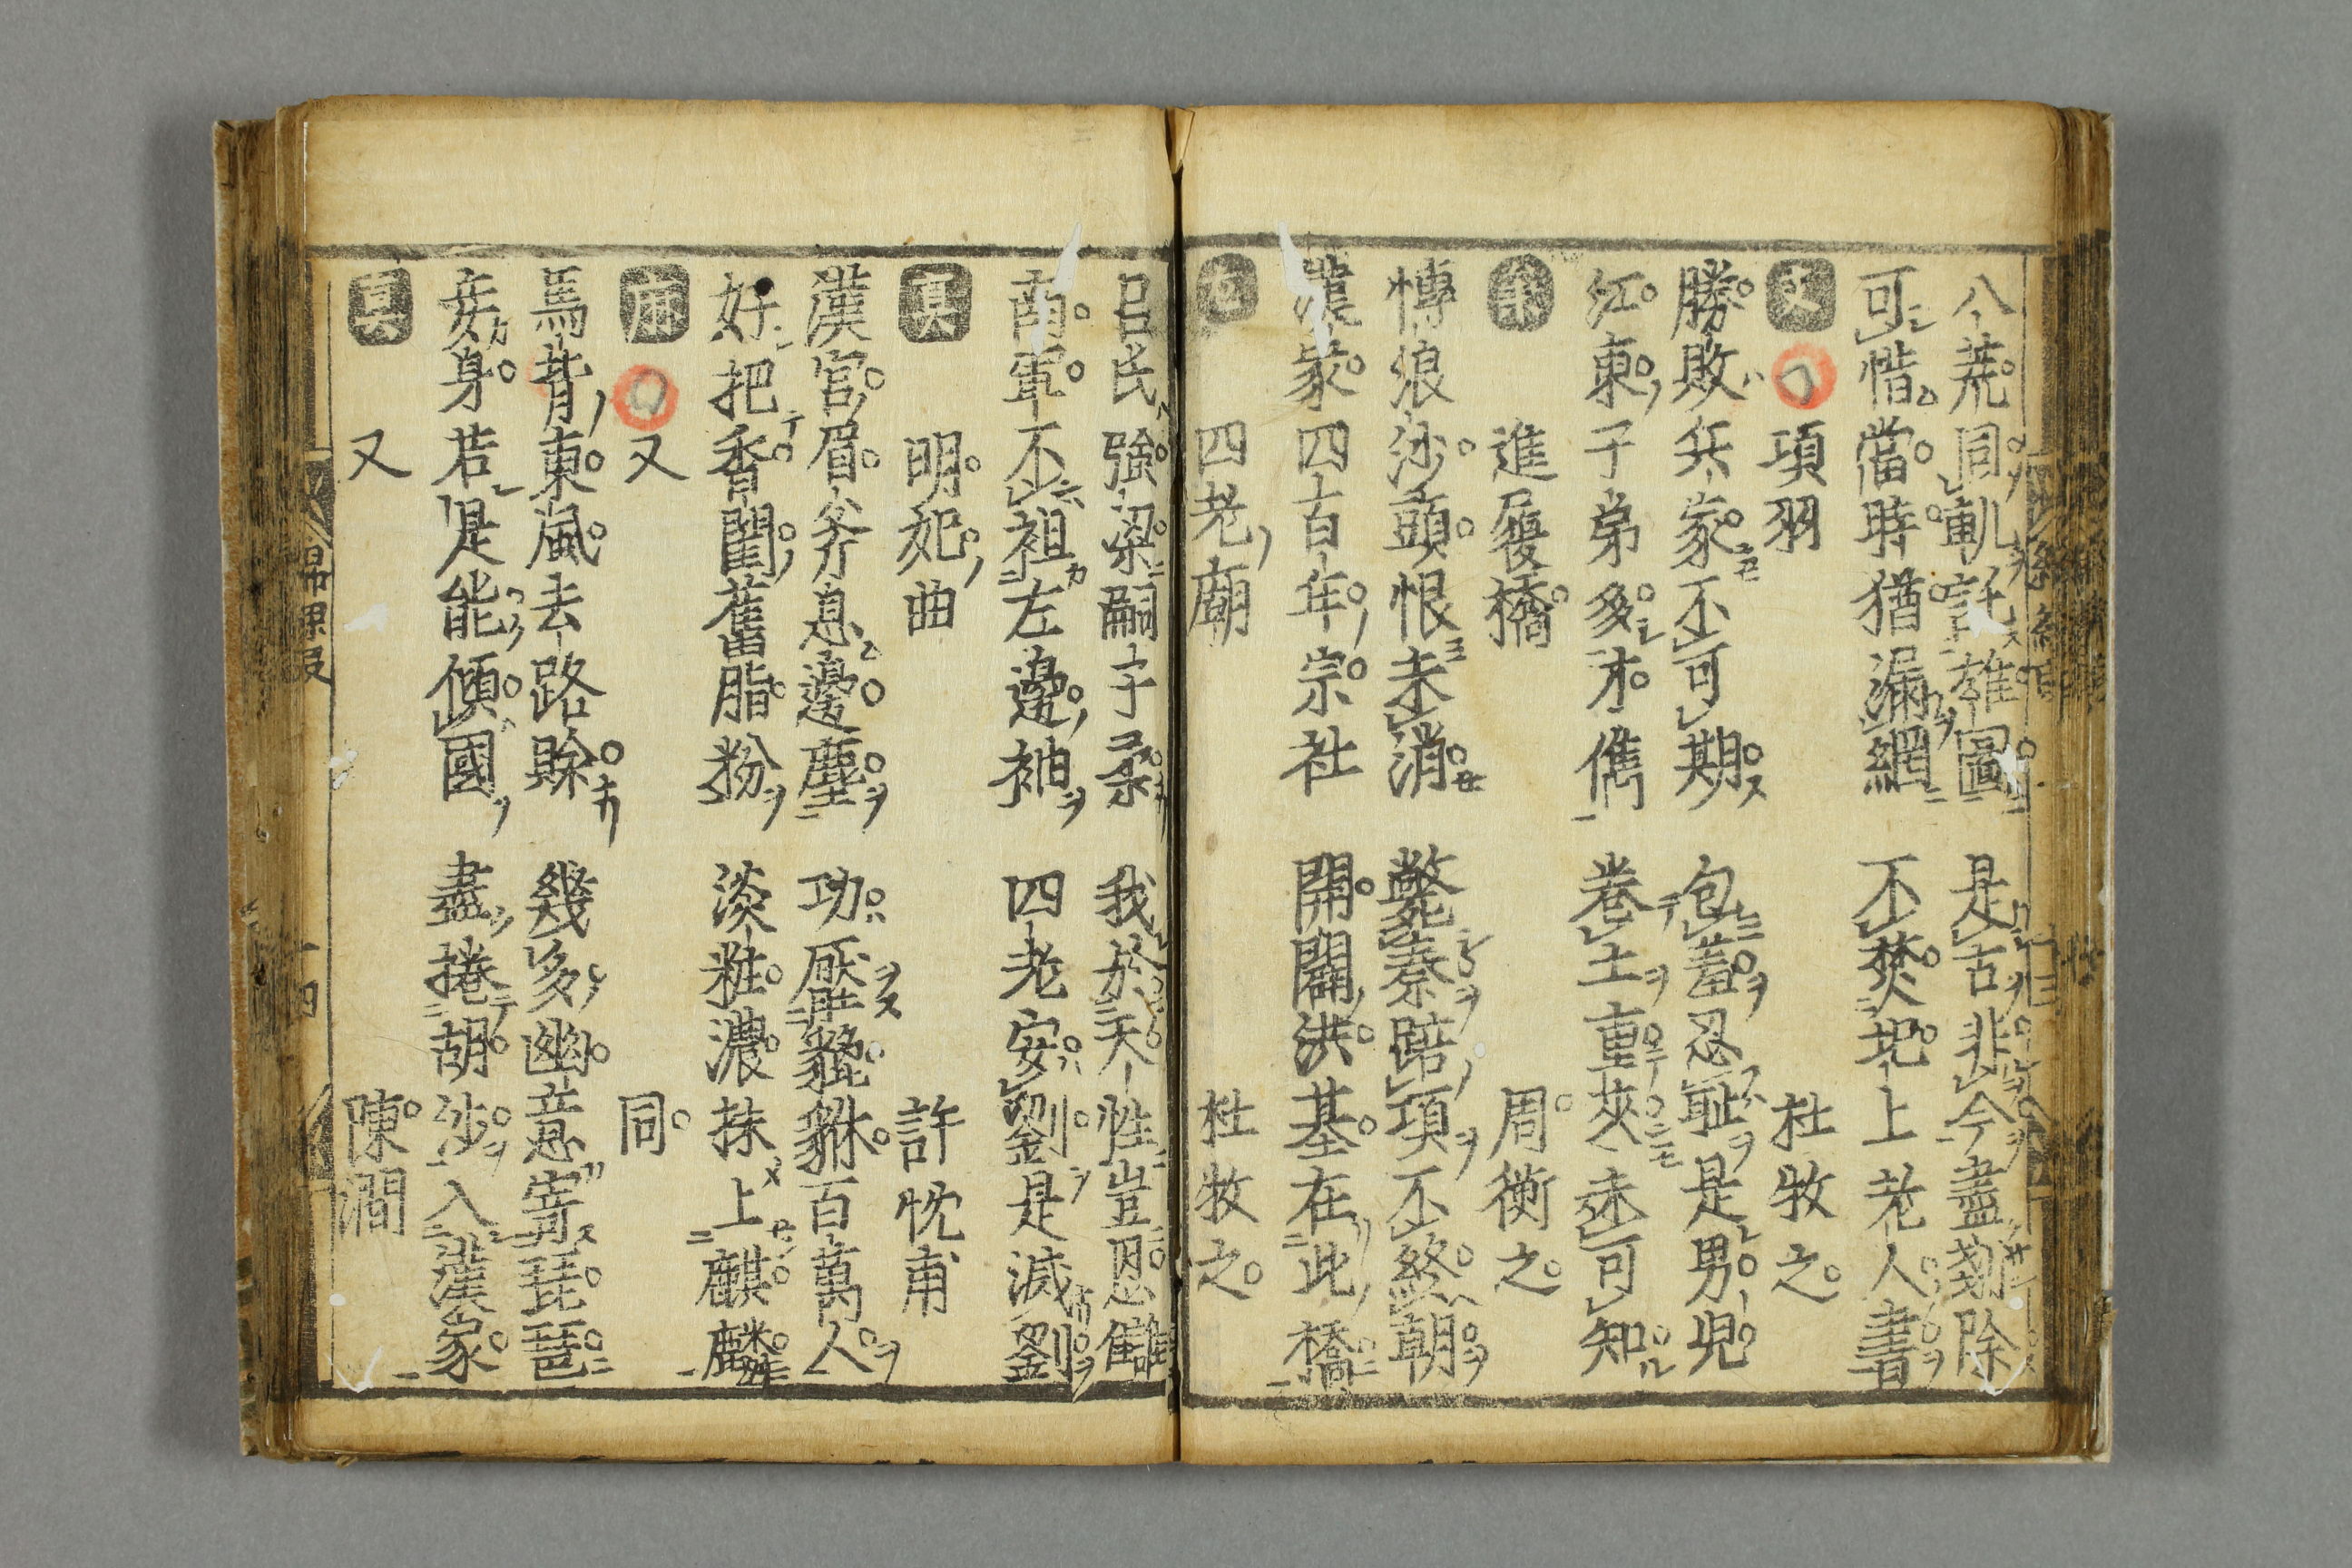 八荒同軌託雄圖 是古非今盡剗除
可惜當時猶漏網 不焚圯上老人書
項羽 杜牧之
勝敗兵家不可期 包羞忍耻是男兒
江東子弟多才儁 卷土重來未可知
進履橋 周衡之
愽浪沙頭恨未消 斃秦踣項不終朝
漢家四百年宗社 開闢洪基在此橋
四老廟 杜牧之
呂氏強梁嗣子柔 我於天性豈恩讎
南軍不袒左邊袖 四老安劉是滅劉
明妃曲 許忱甫
漢宮眉斧息邊塵 功壓貔貅百萬人
好把香閨舊脂粉 淡粧濃抹上麒麟
又 同
馬背東風去路賒 幾多幽意寄琵琶
妾身若是能傾國 盡捲胡沙入漢家
又 陳澗